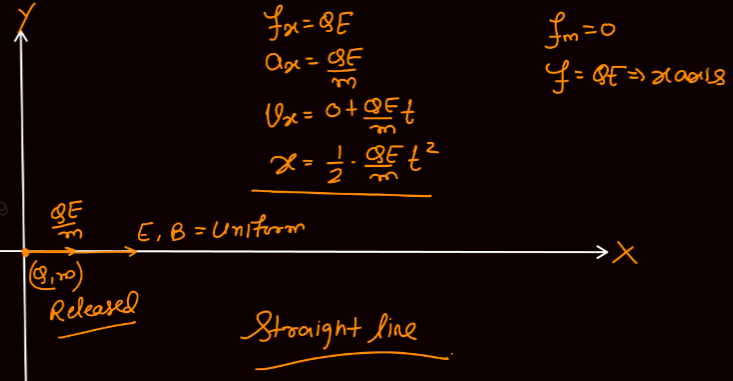 Y
fx = QE
ax = QE/m
Vx = 0 + QE/m t
x = 1/2 . QE/m t²
fm = 0
f = QE ⇒ x axis
QE/m
E, B = Uniform
X
(Q, m)
Released
Straight line